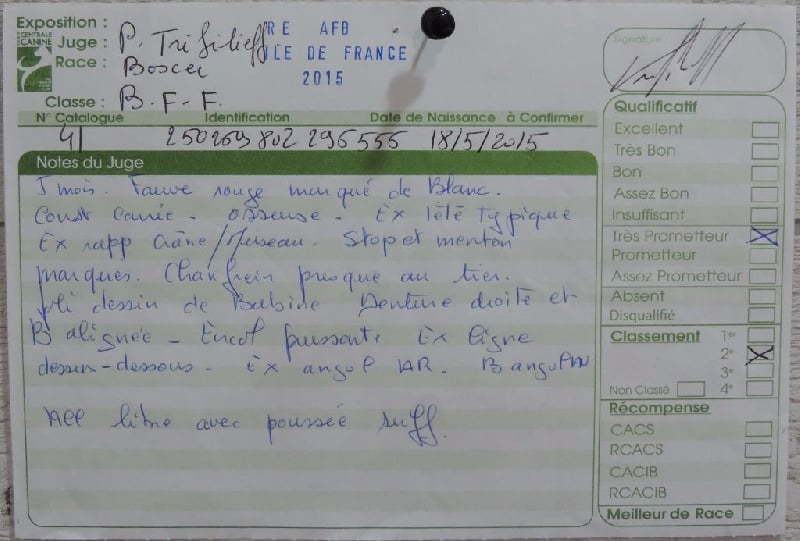 Exposition : RE AFB
CENTRALE CANINE
Juge : P. Trifilieff ILE DE FRANCE
Race : Boxer 2015
Classe : B.F.F.
N° Catalogue Identification Date de Naissance à Confirmer
41 250269802 296555 18/5/2015
Notes du Juge
5 mois. Fauve rouge marqué de Blanc.
Const Carrée - osseuse - Ex tête typique
Ex rapp Crâne/Museau. Stop et menton
marqués. Chanfrein presque au tier.
dessin de Babine Denture droite et
B alignée - Encol puissante Ex ligne
dessus-dessous - Ex angul AR. B angul AV
All libre avec poussée suff.
Signature
Qualificatif
Excellent
Très Bon
Bon
Assez Bon
Insuffisant
Très Prometteur X
Prometteur
Assez Prometteur
Absent
Disqualifié
Classement 1er
2e X
3e
Non Classé 4e
Récompense
CACS
RCACS
CACIB
RCACIB
Meilleur de Race